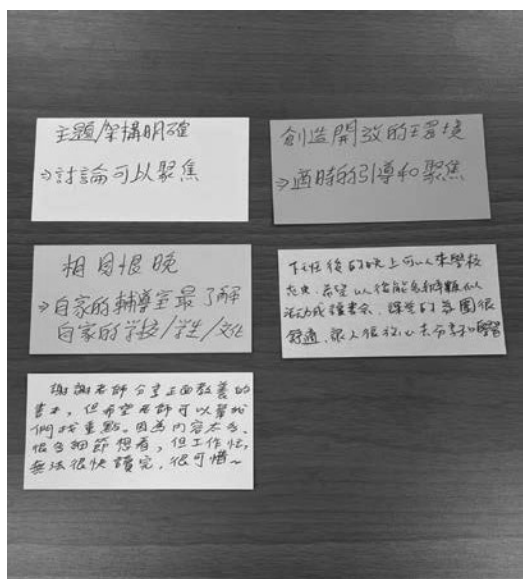 主題/架構明確
→討論可以聚焦
創造開放的環境
→適時的引導和聚焦
相見恨晚
→自家的輔導室最了解
自家的学校/学生/文化
下班後的晚上可以來學校
充電,希望以後能多辦類似
活動或讀書會,課堂的氛圍很
舒適,讓人很放心去分享和學習
謝謝老師分享正面教養的
書本,但希望老師可以幫我
們找重點。因為內容太多,
很多細節想看,但工作忙,
無法很快讀完,很可惜~